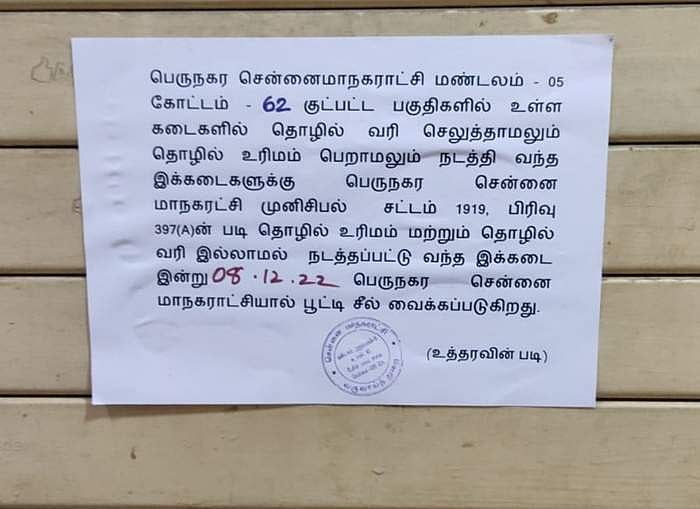 பெருநகர சென்னைமாநகராட்சி மண்டலம் - 05
கோட்டம் - 62 குட்பட்ட பகுதிகளில் உள்ள
கடைகளில் தொழில் வரி செலுத்தாமலும்
தொழில் உரிமம் பெறாமலும் நடத்தி வந்த
இக்கடைகளுக்கு பெருநகர சென்னை
மாநகரட்சி முனிசிபல் சட்டம் 1919, பிரிவு
397(A)ன் படி தொழில் உரிமம் மற்றும் தொழில்
வரி இல்லாமல் நடத்தப்பட்டு வந்த இக்கடை
இன்று 08.12.22 பெருநகர சென்னை
மாநகராட்சியால் பூட்டி சீல் வைக்கப்படுகிறது.
(உத்தரவின் படி)
சென்னை மாநகராட்சி
வருவாய்த் துறை